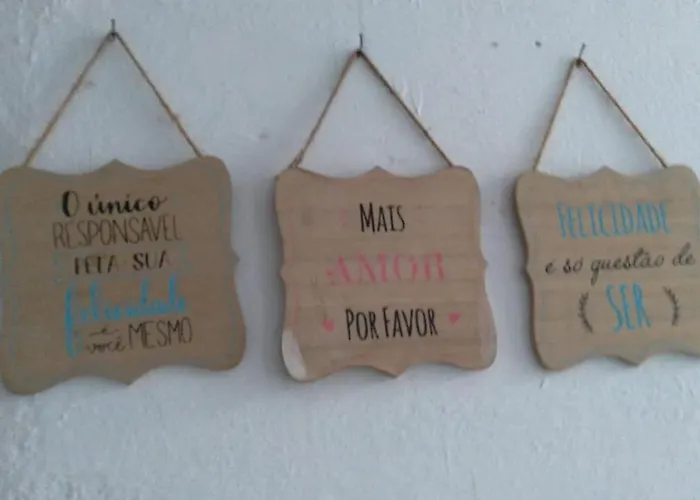 O único
RESPONSAVEL
PELA SUA
felicidade
é
você MESMO
MAIS
AMOR
POR FAVOR
FELICIDADE
e só questão de
SER